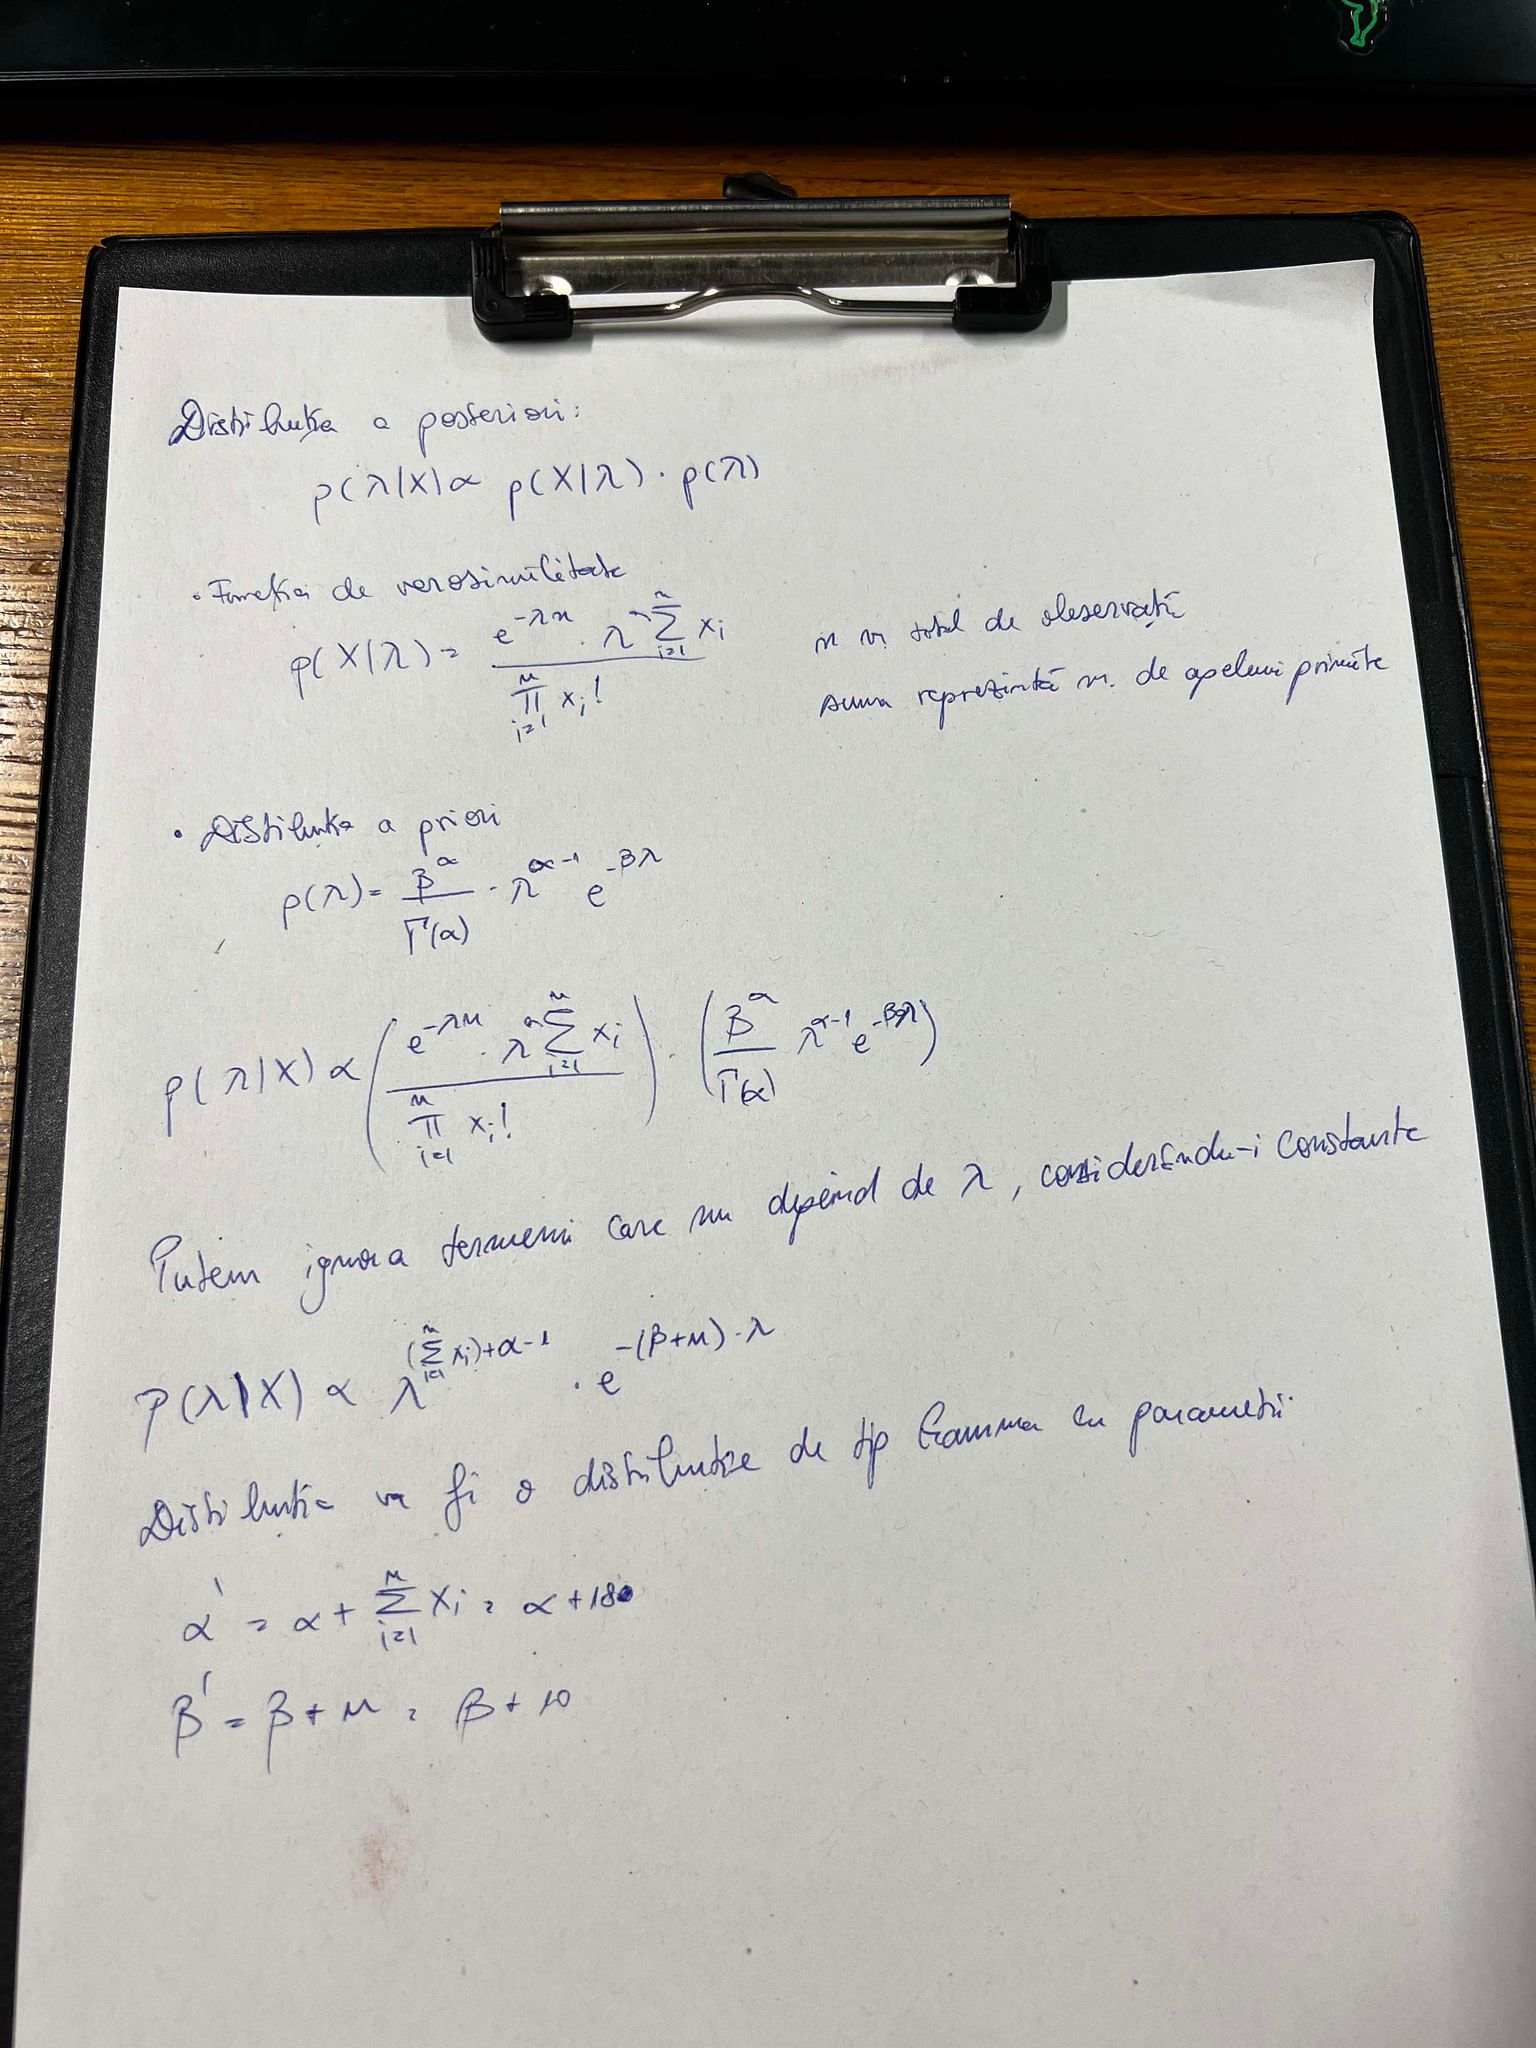 Distribuția a posteriori:
p(λ|X) ∝ p(X|λ) · p(λ)
• Funcția de verosimilitate
p(X|λ) = (e^{-λn} · λ^{∑_{i=1}^{n} x_i}) / (∏_{i=1}^{n} x_i!)
n nr. total de observații
suma reprezintă nr. de apeluri primite
• Distribuția a priori
p(λ) = β^α / Γ(α) · λ^{α-1} e^{-βλ}
p(λ|X) ∝ ((e^{-λn} · λ^{∑_{i=1}^{n} x_i}) / (∏_{i=1}^{n} x_i!)) · (β^α / Γ(α) λ^{α-1} e^{-βλ})
Putem ignora termenii care nu depind de λ, considerându-i constante
P(λ|X) ∝ λ^{(∑_{i=1}^{n} x_i)+α-1} · e^{-(β+n)·λ}
Distribuția va fi o distribuție de tip Gamma cu parametrii
α' = α + ∑_{i=1}^{n} x_i = α + 180
β' = β + n = β + 10